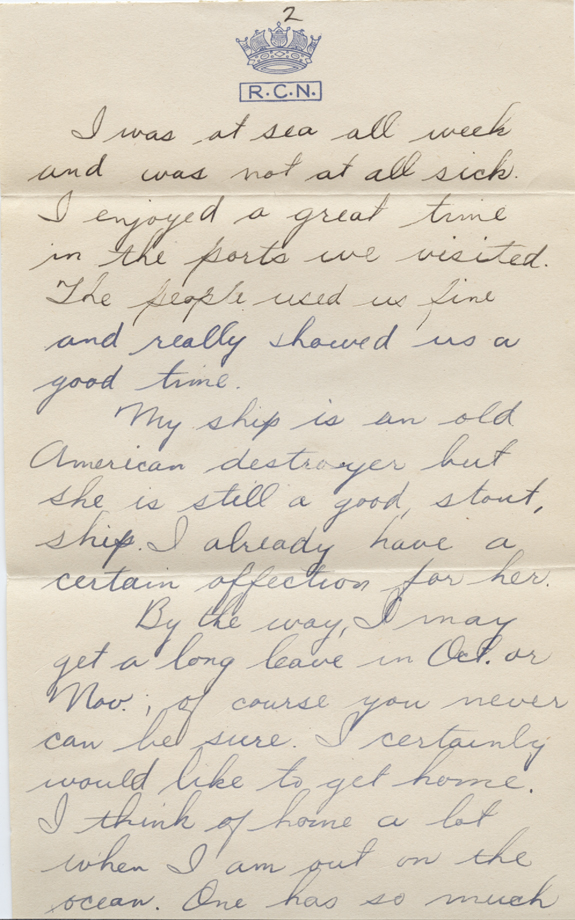 2
R.C.N.
I was at sea all week
and was not at all sick.
I enjoyed a great time
in the ports we visited.
The people used us fine
and really showed us a
good time.
My ship is an old
American destroyer but
she is still a good, stout,
ship. I already have a
certain affection for her.
By the way, I may
get a long leave in Oct. or
Nov.; of course you never
can be sure. I certainly
would like to get home.
I think of home a lot
when I am out on the
ocean. One has so much